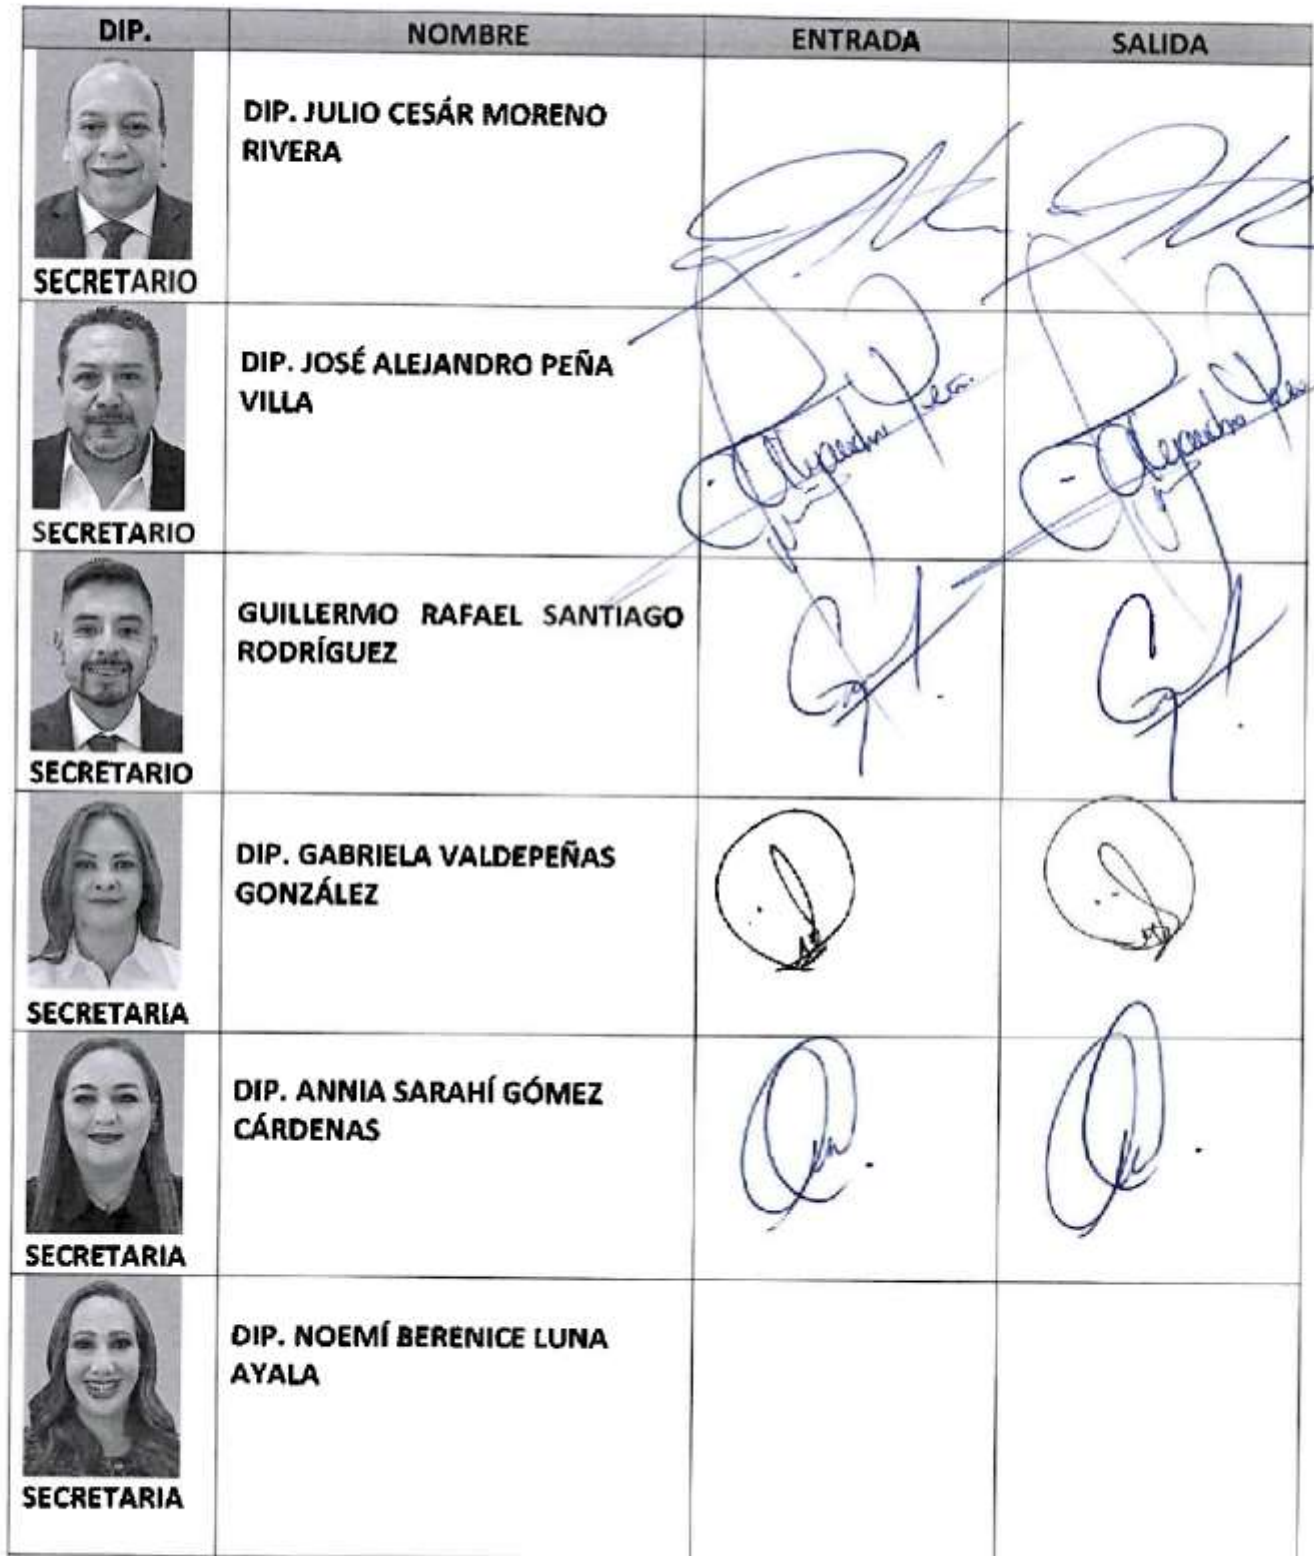 DIP. NOMBRE ENTRADA SALIDA
DIP. JULIO CESÁR MORENO
RIVERA
SECRETARIO
DIP. JOSÉ ALEJANDRO PEÑA
VILLA
Alejandro Peña
Alejandro Peña
SECRETARIO
GUILLERMO RAFAEL SANTIAGO
RODRÍGUEZ
SECRETARIO
DIP. GABRIELA VALDEPEÑAS
GONZÁLEZ
SECRETARIA
DIP. ANNIA SARAHÍ GÓMEZ
CÁRDENAS
SECRETARIA
DIP. NOEMÍ BERENICE LUNA
AYALA
SECRETARIA